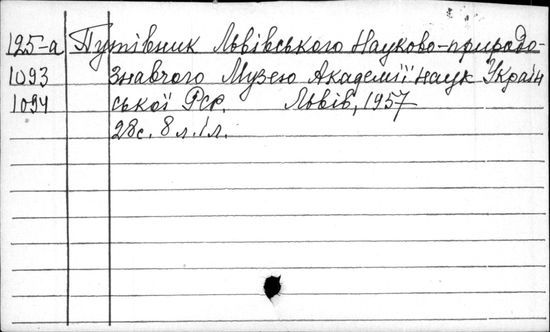 125-а Путівник Львівського Науково-природо-
1093 знавчого Музею Академії наук Україн
1094 ської РСР. Львів, 1957
28с. 8 л. іл.